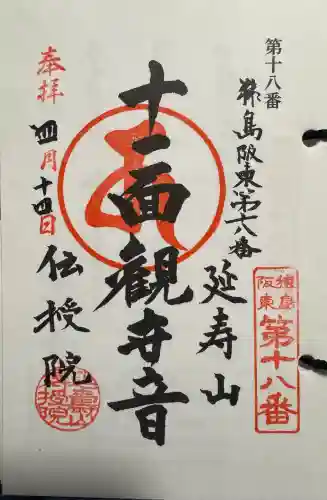 第十八番
猿島阪東第十八番
奉拝
四月十四日
十一面観世音
延寿山
伝授院
猿島
阪東
第十八番